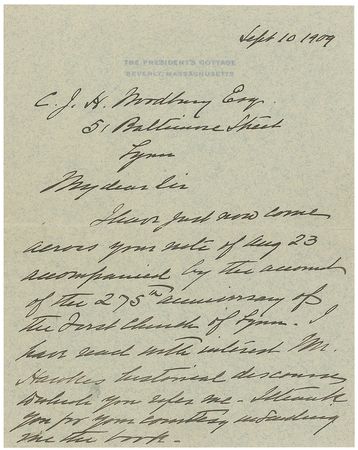 Sept 10 1909
THE PRESIDENT'S COTTAGE
BEVERLY, MASSACHUSETTS
C. J. H. Woodbury Esq.
51 Baltimore Street
Lynn
My dear Sir
I have just now come
across your note of Aug 23
accompanied by the account
of the 275th anniversary of
the First Church of Lynn. I
have read with interest Mr.
Hawkes historical discourse
to which you refer me. I thank
you for your courtesy in sending
me the book.